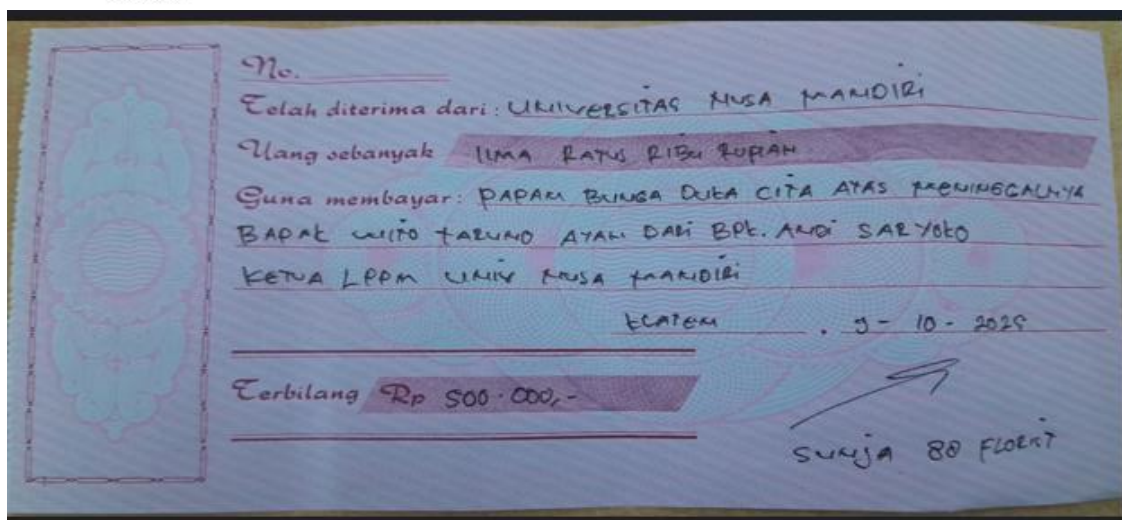 No.
Telah diterima dari : UNIVERSITAS NUSA MANDIRI
Uang sebanyak LIMA RATUS RIBU RUPIAH
Guna membayar : PAPAN BUNGA DUKA CITA ATAS MENINGGALNYA
BAPAK WITO TARUNO AYAH DARI BPK. ANDI SARYOKO
KETUA LPPM UNIV NUSA MANDIRI
KLATEN . 9 - 10 - 2025
Terbilang Rp 500.000,-
SUNJA 88 FLORIST